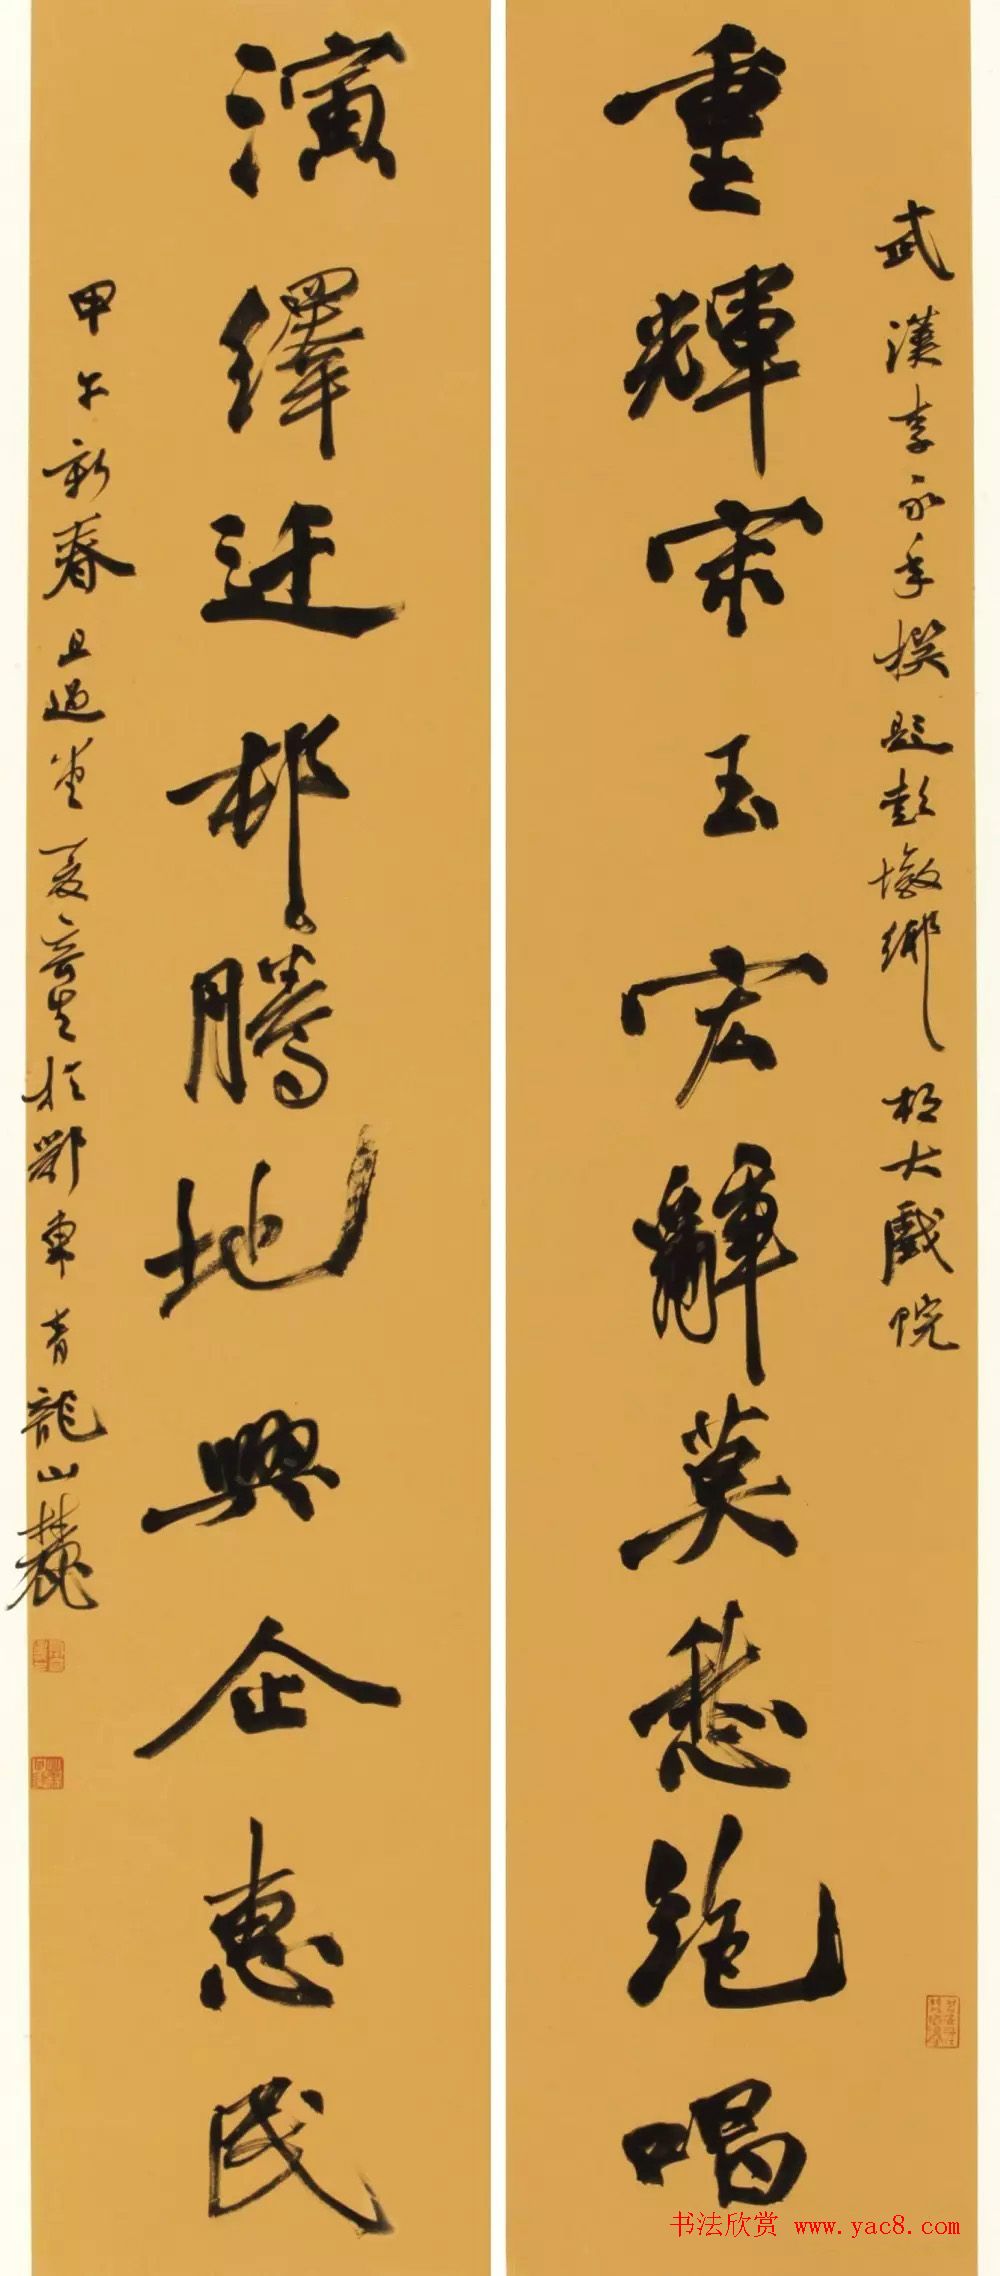 武漢李永年撰題彭墩鄉村大戲院
重輝宋玉宏辭莫愁絕唱
演繹迁邨騰地興企惠民
甲午新春且過堂夏奇星於鄂東青龍山麓
书法欣赏 www.yac8.com